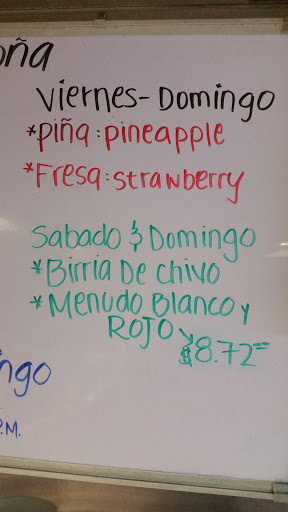 oña
Viernes-Domingo
*piña:pineapple
*Fresa:strawberry
Sabado & Domingo
*Birria De chivo
*Menudo Blanco y
ROJO
$8.72
ngo
P.M.